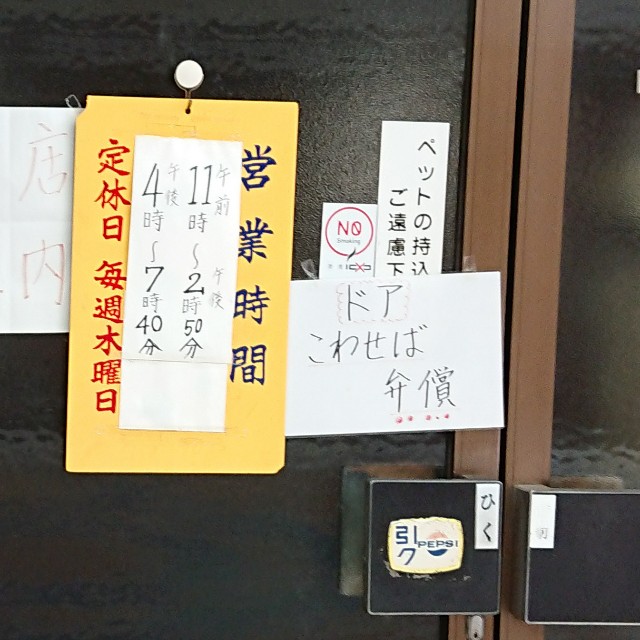 店
内
営業時間
午前
11時〜2時50分
午後
午後
4時〜7時40分
定休日 毎週木曜日
NO
Smoking
ペットの持込
ご遠慮下
ドア
こわせば
弁償
ひく
引ク
PEPSI